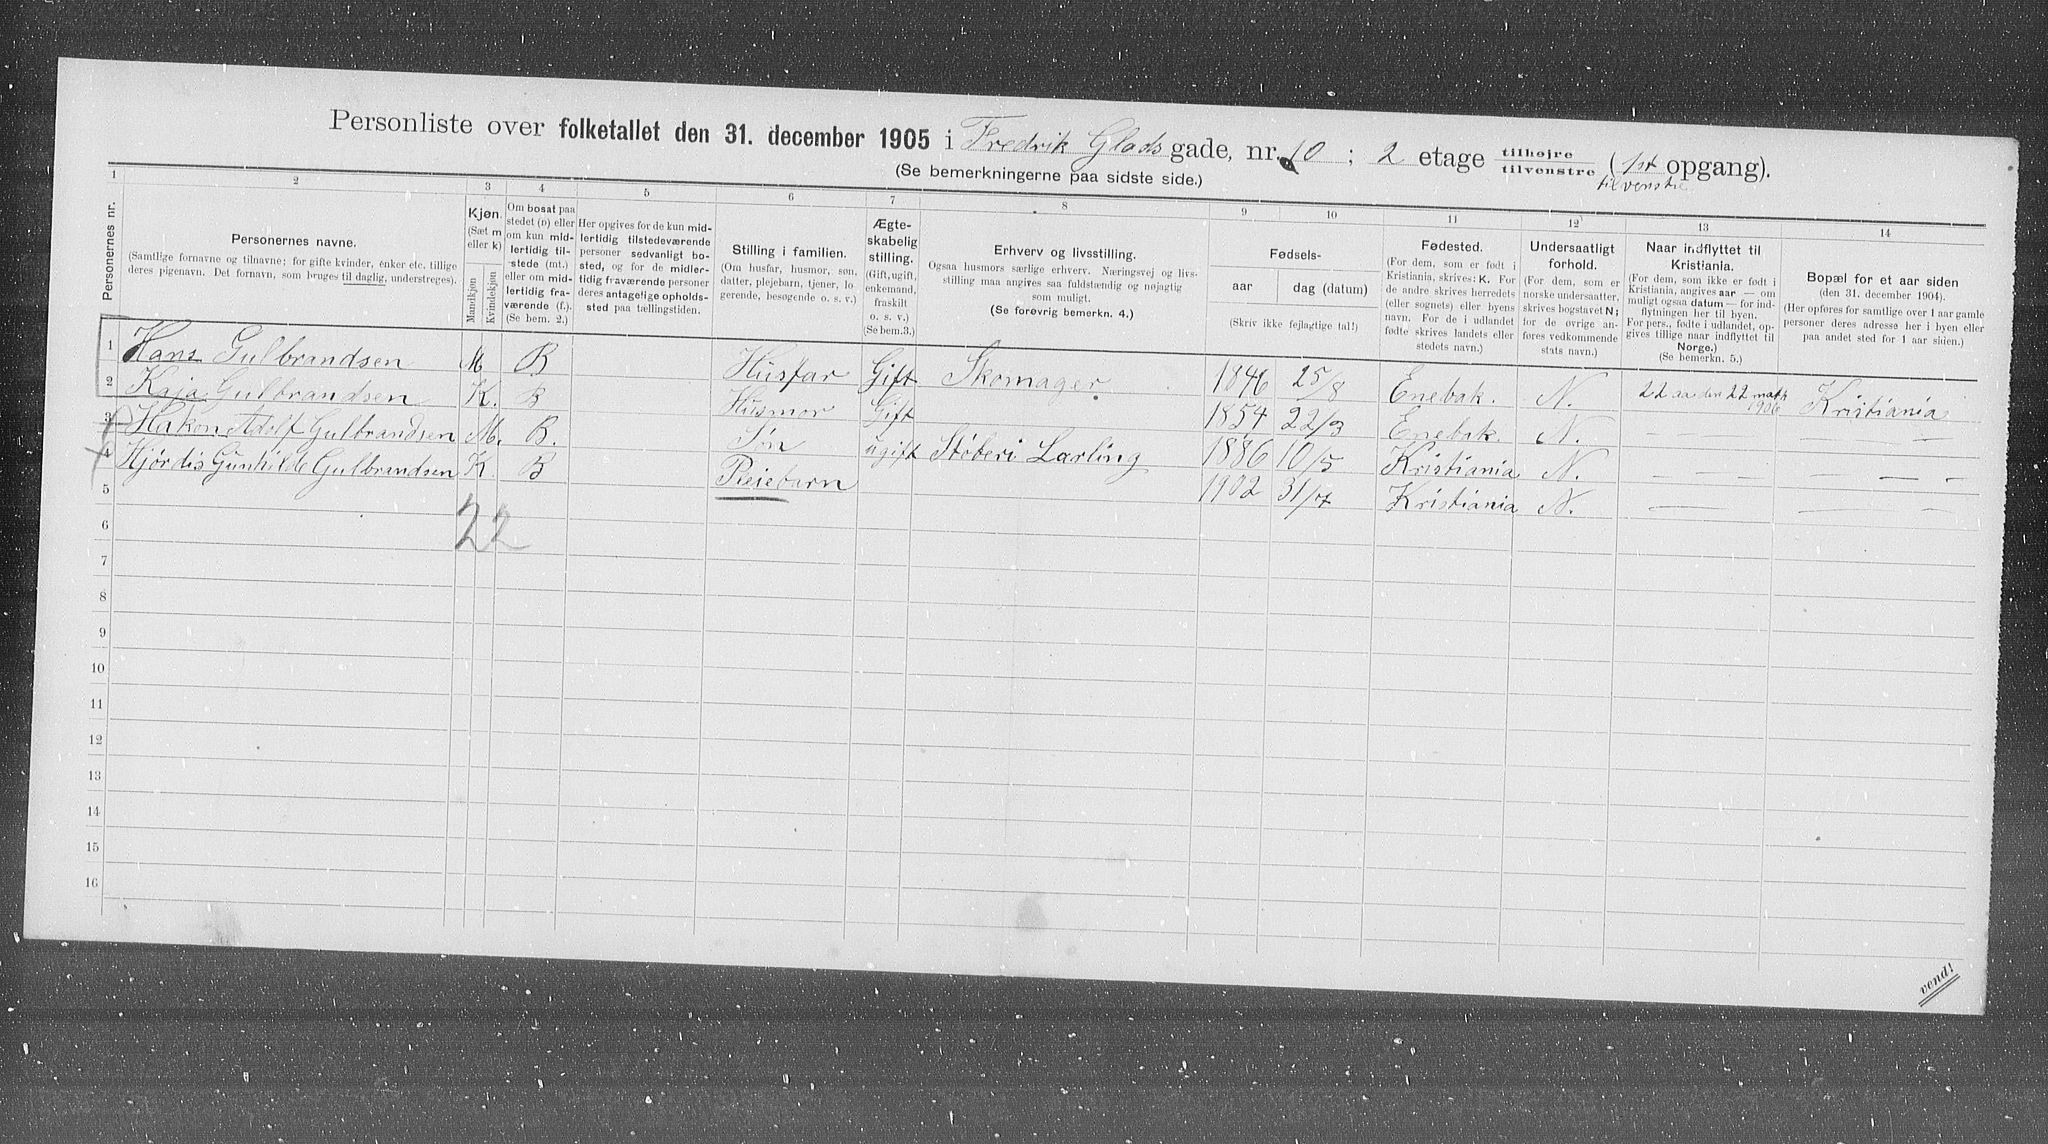 Personliste over folketallet den 31. december 1905 i Fredrik Glads gade, nr. 10 ; 2 etage tilhøjre / tilvenstre (1st opgang).
tilvenstre
(Se bemerkningerne paa sidste side.)
1 2 3 4 5 6 7 8 9 10 11 12 13 14
Personernes nr.
Personernes navne.
(Samtlige fornavne og tilnavne; for gifte kvinder, enker etc. tillige
deres pigenavn. Det fornavn, som bruges til daglig, understreges).
Kjøn.
(Sæt m
eller k)
Mandkjøn
Kvindekjøn
Om bosat paa
stedet (b) eller
om kun mid-
lertidig til-
stede (mt.)
eller om mid-
lertidig fra-
værende (f.).
(Se bem. 2.)
Her opgives for de kun mid-
lertidig tilstedeværende
personer sedvanlig bo-
sted, og for de midler-
tidig fraværende personer
deres antagelige opholds-
sted paa tællingstiden.
Stilling i familien.
(Om husfar, husmor, søn,
datter, plejebarn, tjener, lo
gerende, besøgende o. s. v.)
Ægte-
skabelig
stilling.
(Gift, ugift,
enkemand,
fraskilt
o. s. v.)
(Se bem.3.)
Erhverv og livsstilling.
Ogsaa husmors særlige erhverv. Næringsvej og livs-
stilling maa angives saa fuldstændig og nøjagtig
som muligt.
(Se forøvrig bemerkn. 4.)
Fødsels-
aar dag (datum)
(Skriv ikke fejlagtige tal!)
Fødested.
(For dem, som er født i
Kristiania, skrives: K. For
de andre skrives herredets
(eller sognets) eller byens
navn. For de i udlandet
fødte skrives landets eller
stedets navn.)
Undersaatligt
forhold.
(For dem, som er
norske undersaatter,
skrives bogstavet N;
for de øvrige an-
føres vedkommende
stats navn.)
Naar indflyttet til
Kristiania.
(For dem, som ikke er født i
Kristiania, angives aar — om
muligt ogsaa datum — for ind-
flytningen her til byen.
For pers., fødte i udlandet, op-
gives tillige naar indflyttet til
Norge.)
(Se bemerkn. 5.)
Bopæl for et aar siden
(den 31. december 1904).
(Her opføres for samtlige over 1 aar gamle
personer deres adresse her i byen eller
paa andet sted for 1 aar siden.)
1 Hans Gulbrandsen M B Husfar Gift Skomager 1846 25/8 Enebak. N. 22 aa den 22 1906 Kristiania
2 Kaja Gulbrandsen K. B Husmor Gift 1854 22/3 Enebak. N. — — — —
3 Hakon Adolf Gulbrandsen M. B. Søn ugift Støberi Larling 1886 10/5 Kristiania N. — — — — —
4 Hjørdis Gunhilde Gulbrandsen K. B Pleiebarn 1902 31/7 Kristiania N. — — — — —
5
6 22
7
8
9
10
11
12
13
14
15
16
vend!